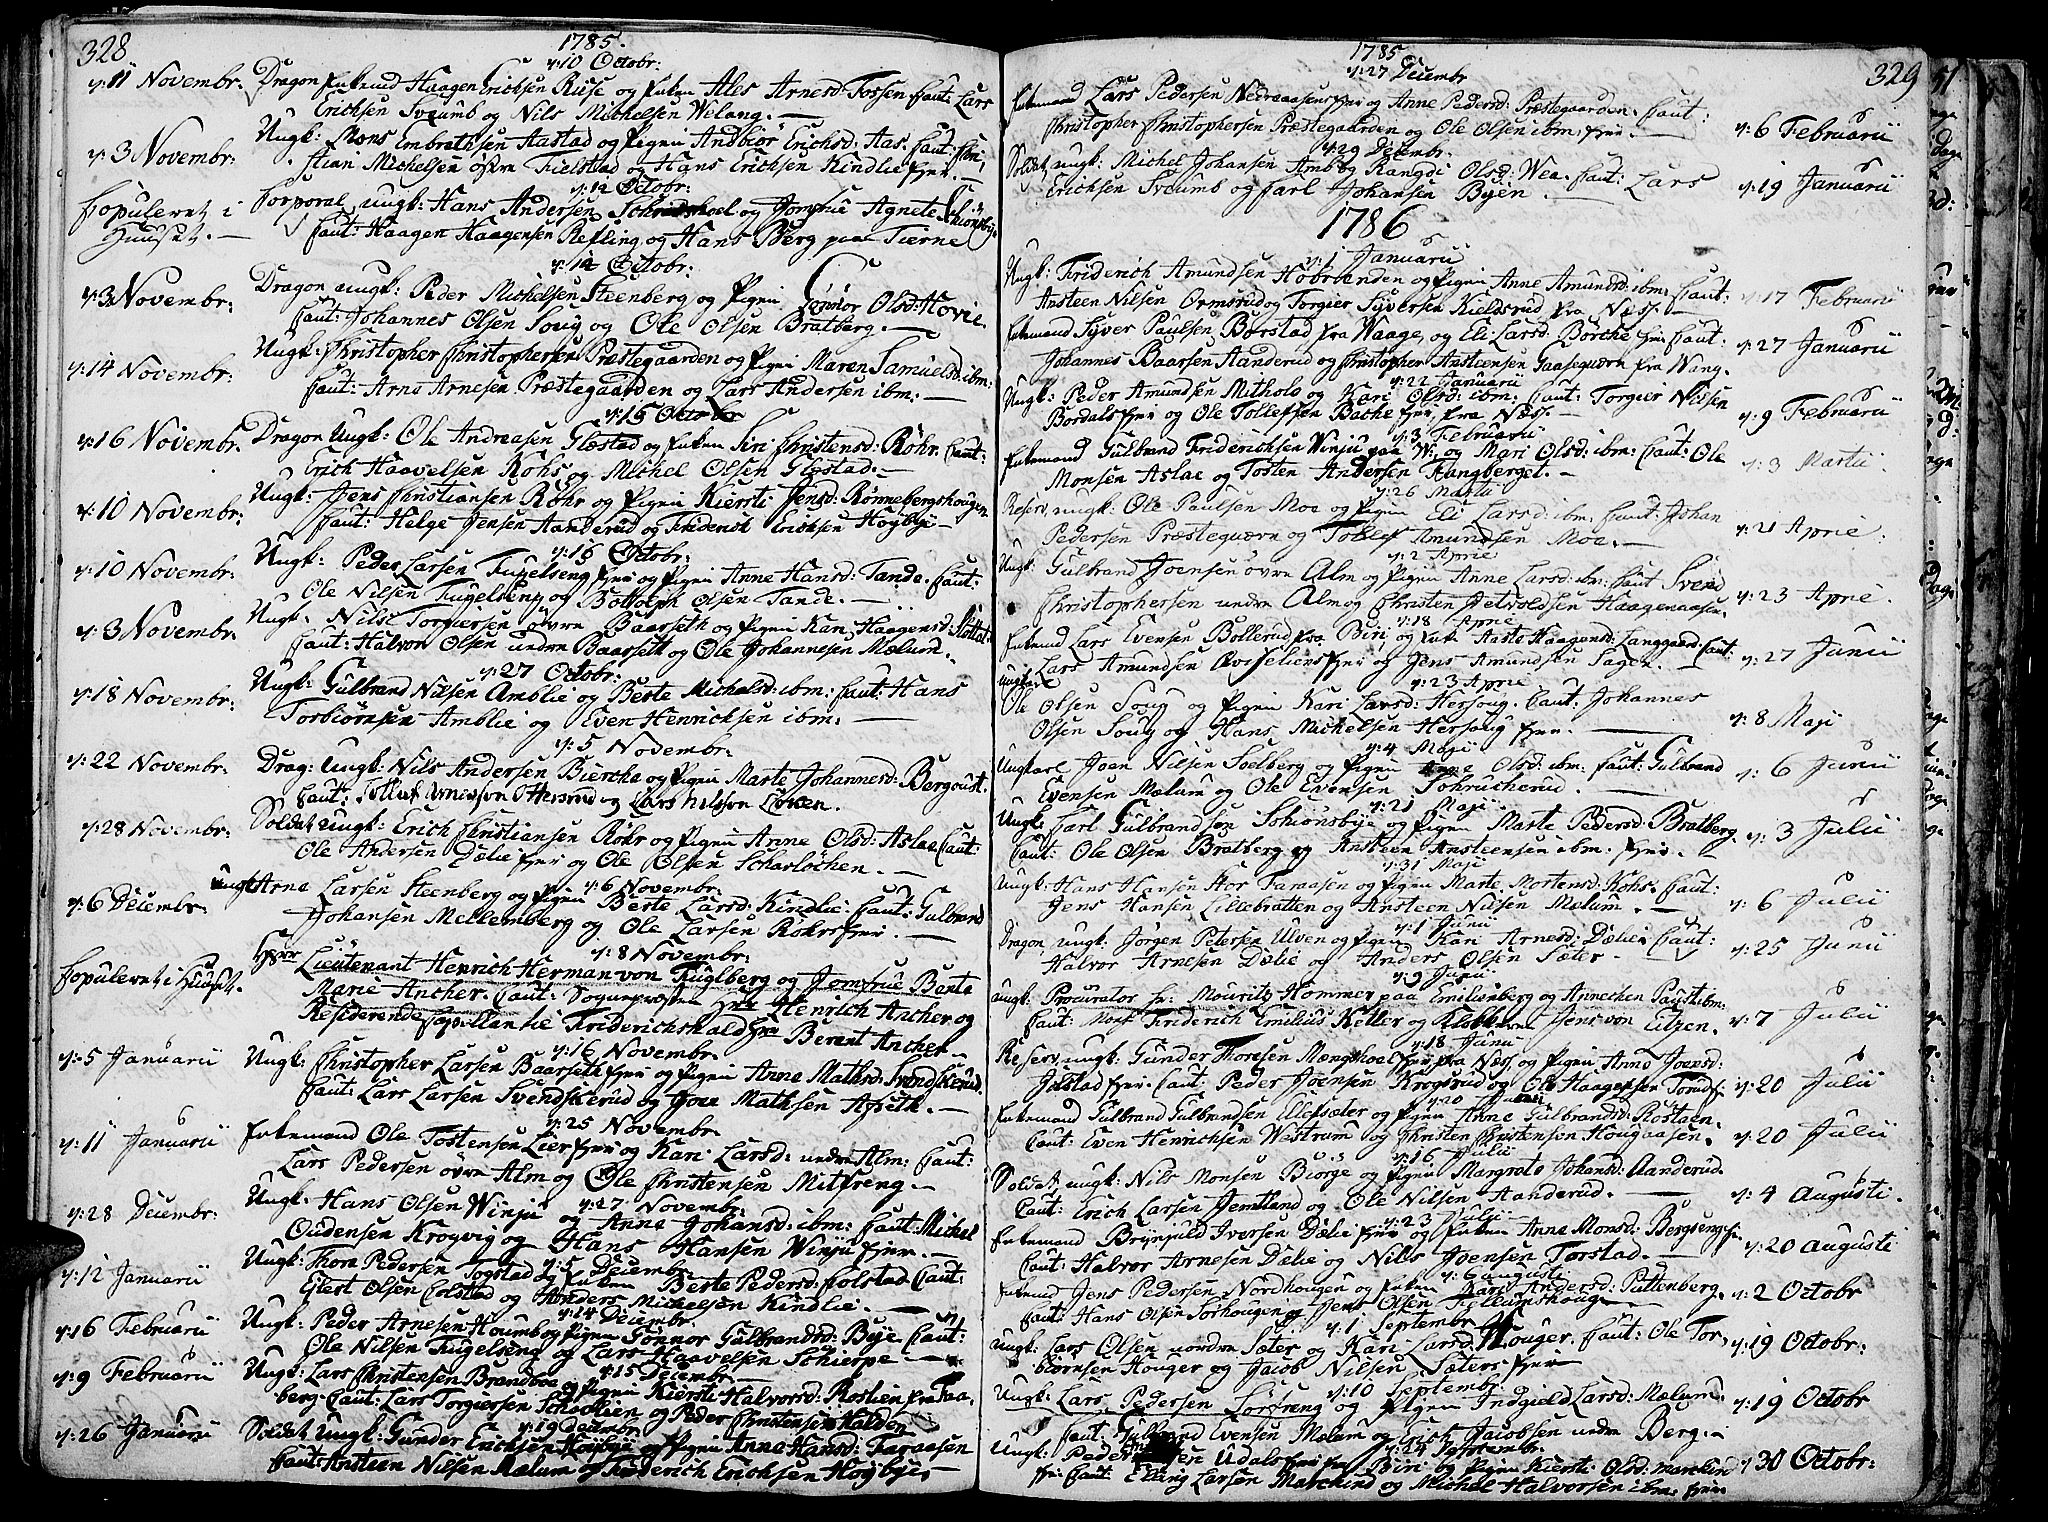 328
1785.
d: 10 Octobr:
d: 11 Novembr. Dragon Enkemd Haagen Ericksen Ruse og Enken Ales Arnesd: Fossen Caut: Lars
Ericksen Sveumb og Nils Michelsen Welang. —
d: 3 Novembr: Ungk: Mons Embrethsen Aastad og Pigen Andbiør Erichsd: Aas. Caut: Chri-
stian Michelsen Fielstad og Hans Ericksen Kindlie
d: 12 Octobr:
Copuleret i Corporal, ungk: Hans Andersen og Jomfrue Agnete
Huuset. — Caut: Haagen Haagensen Refling og Hans Berg paa Tierne
d: 12 Octobr:
d: 3 Novembr: Dragon ungk: Peder Michelsen Steenberg og Pigen Gønnor Olsd: Hovie.
Caut: Johannes Olsen Soug og Ole Olsen Bratberg. —
d: 14 Novembr: Ungk: Christopher Christophersen Præstegaarden og Pigen Maren Samuelsd: ibm:
Caut: Arne Arnesen Præstegaarden og Lars Andersen ibm: —
d: 15 Octobr
d: 16 Novembr. Dragon Ungk: Ole Andreasen Gløstad og Enken Siri Christensd: Røhr. Caut:
Erich Haavelsen Kohs og Michel Olsen Gløstad. —
d: 10 Novembr: Ungk: Jens Christiansen Røhr og Pigen Kiersti Jensd: Rønnebergshougen
Caut: Helge Jensen Aanderud og Friderich Ericksen Høybye —
d: 16 Octobr:
d: 10 Novembr: Ungk: Peder Larsen Fugelseng og Pigen Anne Hansd: Tande. Caut:
Ole Nilsen Fugelseng og Bottolph Olsen Tande. —
d: 3 Novembr: Ungk. Nils Torgiersen øvre Baarseth og Pigen Kari Haagensd:
Caut: Halvor Olsen undre Baarsett og Ole Johannesen Mælum. —
d: 27 Octobr:
d: 18 Novembr: Ungk: Gulbrand Nilsen Amblie og Berte Michelsd: ibm: Caut: Hans
Torbiørnsen Amblie og Even Henricksen ibm: —
d: 5 Novembr:
d: 22 Novembr: Drag: Ungk: Nils Andersen Biercke og Pigen Marte Johannesd:
Caut: og Lars Nilsen
d: 28 Novembr: Soldat Ungk: Erich Christiansen Røhr og Pigen Anne Olsd: Aslae Caut:
Ole Andersen Dælie og Ole Olsen Scharløchen. —
d: 6 Novembr:
d: 6 Decembr. Ungk Arne Larsen Steenberg og Pigen Berte Larsd: Kindlie. Caut: Gulbrand
Johansen Mellemberg og Ole Larsen —
d: 8 Novembr:
Copuleret i Huuset. Lieutenant Henrich Herman von Fuglberg og Jomfrue Bente
Marie Ancher. Caut: Sogneprosten Henrich Ancher og
Residerende Capellan til Friderichshald Berent Ancher
d: 16 Novembr.
d: 5 Januarii Ungk: Christopher Larsen Baarseth og Pigen Anne Mathsd: Svendskerud
Caut: Lars Larsen Svendskerud og Mathsen —
d: 25 Novembr
d: 11 Januarii Enkemand Ole Tostensen Lier og Kari Larsd: undre Alm: Caut:
Lars Pedersen øvre Alm og Ole Christensen Mitfreng. —
d: 27 Novembr:
d: 28 Decembr: Ungk: Hans Olsen Winju og Anne Johansd: ibm: Caut: Michel
Oudensen Krogvig og Hans Hansen Winju —
d: 5 Decembr:
d: 12 Januarii Ungk: Thore Pedersen Fogstad og Enken Berte Pedersd: Colstad Caut:
Elert Olsen Colstad og Anders Michelsen Kindlie. —
d: 14 Decembr.
d: 16 Februarii Ungk: Peder Arnesen Houmb og Pigen Gonnor Gulbrandsd: Bye. Caut:
Ole Nilsen Fugelseng og Lars Haavelsen Schierpe —
d: 15 Decembr —
d: 9 Februarii Ungk: Lars Christensen Brandboe og Pigen Kiersti Halvorsd: Rostien
berg Caut: Lars Torgiersen og Peder Christensen
d: 19 Decembr
d: 26 Januarii Soldat Ungk: Gunder Ericksen og Pigen Anne Hansd: Faraasen
Caut: Ansteen Nilsen Mælum og Friderich Ericksen Høybye. —
1785
d: 27 Decembr
329
Enkemand Lars Pedersen og Anne Pedersd: Præstegaarden. Caut:
Christopher Christophersen Præstegaarden og Ole Olsen ibm: — d: 6 Februarii
d: 29 Decembr:
Soldat, ungk: Michel Johansen Amb og Rangdi Olsd: Wea. Caut: Lars
Ericksen Sveumb og Carl Johansen Byen. — d: 19 Januarii
1786
d: 1 Januarii
Ungk: Friderich Amundsen Høbranden og Pigen Anne Amundsd: ibm: Caut:
Ansteen Nilsen Ormsrud og Torgier Syversen Kieldsrud fra Næss. — d: 17 Februarii
Enkemand Syver Paulsen Børstad fra Waage, og Eli Larsd: Børche Caut:
Johannes Baarsen Aanderud og Christopher Ansteensen Gaasequærn fra Wang. d: 27 Januarii
d: 22 Januarii
Ungk: Peder Amundsen Mitholo og Kari Olsd: ibm: Caut: Torgier Nilsen
Bordals og Ole Tollefsen Bache fra Næss. — d: 9 Februarii
d: 3 Februarii
Enkemand Gulbrand Friderichsen Winju og Mari Olsd: ibm: Caut: Ole
Monsen Aslae og Tosten Andersen Hangberget. — d: 3 Martii.
d: 26 Martii
Reserv, ungk: Ole Paulsen Moe og Pigen Eli Larsd: ibm: Caut: Johan
Pedersen Præstequærn og Tollef Amundsen Moe. — d: 21 Aprie:
d: 2 Aprie
Ungk: Gulbrand Joensen øvre Alm og Pigen Anne Larsd: ibm: Caut Svend
Christophersen undre Alm og Christen Haagenaasen. d: 23 Aprie.
d: 18 Aprie
Enkemd Lars Evensen Bollerud fra Biri og Enke Aaste Haagensd: Langgaard Caut:
Lars Amundsen og Jens Amundsen — d: 27 Junii
d: 23 Aprie
ungkarl Ole Olsen Soug og Pigen Kari Larsd: Hersoug. Caut: Johannes
Olsen Soug og Hans Michelsen Hersoug — d: 8 Maji
d: 4 Maji
Ungkarl Joen Nilsen Soelberg og Pigen Anne Olsd: ibm: Caut: Gulbrand
Evensen Mælum og Ole Evensen — d: 6 Junii
d: 21 Maji
Ungk: Carl Gulbrandsen Schiønsbye og Pigen Marte Pedersd: Bratberg
Caut: Ole Olsen Bratberg og Ansteen Ansteensen ibm: — d: 3 Julii
d: 31 Maji
Ungk: Hans Hansen Stor Faraasen og Pigen Marte Mortensd: Kohs. Caut:
Jens Hansen Lillebratten og Ansteen Nilsen Mælum. — d: 6 Julii
d: 1 Junii
Dragon, ungk: Jørgen Petersen Ulven og Pigen Kari Arnesd: Dælie Caut:
Halvor Arnesen Dælie og Anders Olsen Sæter. — d: 25 Junii
d: 9 Junii
ungk: Procurator Sr: Mouritz Hommer paa Emilienberg og Annechen Paust ibm:
Caut: Friderich Emilius Keller og Klokkeren Jens von Eitzen. d: 7 Julii
d: 18 Junii
Reserv, ungk: Gunder Thoresen fra Næss og Pigen Anne Joensd:
Jøstad Caut: Peder Joensen Krogsrud og Ole Haagensen d: 20 Julii
d: 20 Junii
Enkemand Gulbrand Gulbrandsen Elchsæter og Pigen Anne Gulbrandsd: Rosteen.
Caut: Even Henricksen Westrum og Christen Christensen Hougaasen. d: 20 Julii
d: 16 Julii
Soldat, ungk: Nils Monsen Biørge og Pigen Margrete Johansd: Aanderud.
Caut: Erich Larsen Jemtland og Ole Nilsen Aanderud. — d: 4 Augusti.
d: 23 Julii
Enkemand Brynhuld Iversen Dælie og Enken Anne Monsd: Bergseng
Caut: Halvor Arnesen Dælie og Nils Joensen Torstad. — d: 20 Augusti
d: 6 Augusti
Enkemd Jens Pedersen Nordhougen og Enken Kari Andersd: Puttenberg
Caut: Hans Olsen Sorhougen og Jens Olsen d: 2 Octobr
d: 1 Septembr
ungk: Lars Olsen nordre Sæter og Kari Larsd: Houger. Caut: Ole Tor-
biørnsen Houger og Jacob Nilsen Sæters d: 19 Octobr:
d: 10 Septembr:
Ungk: Lars Pedersen Sørfreng og Pigen Indgield Larsd: Mælum.
Caut: Gulbrand Evensen Mælum og Erich Jacobsen undre Berg. — d: 19 Octobr
d: 24 Septembr.
Ungk: Peder Udals fra Biri og Pigen Kiersti Olsd:
Caut: Elling Larsen og Michel Halvorsen ibm: d: 30 Octobr: